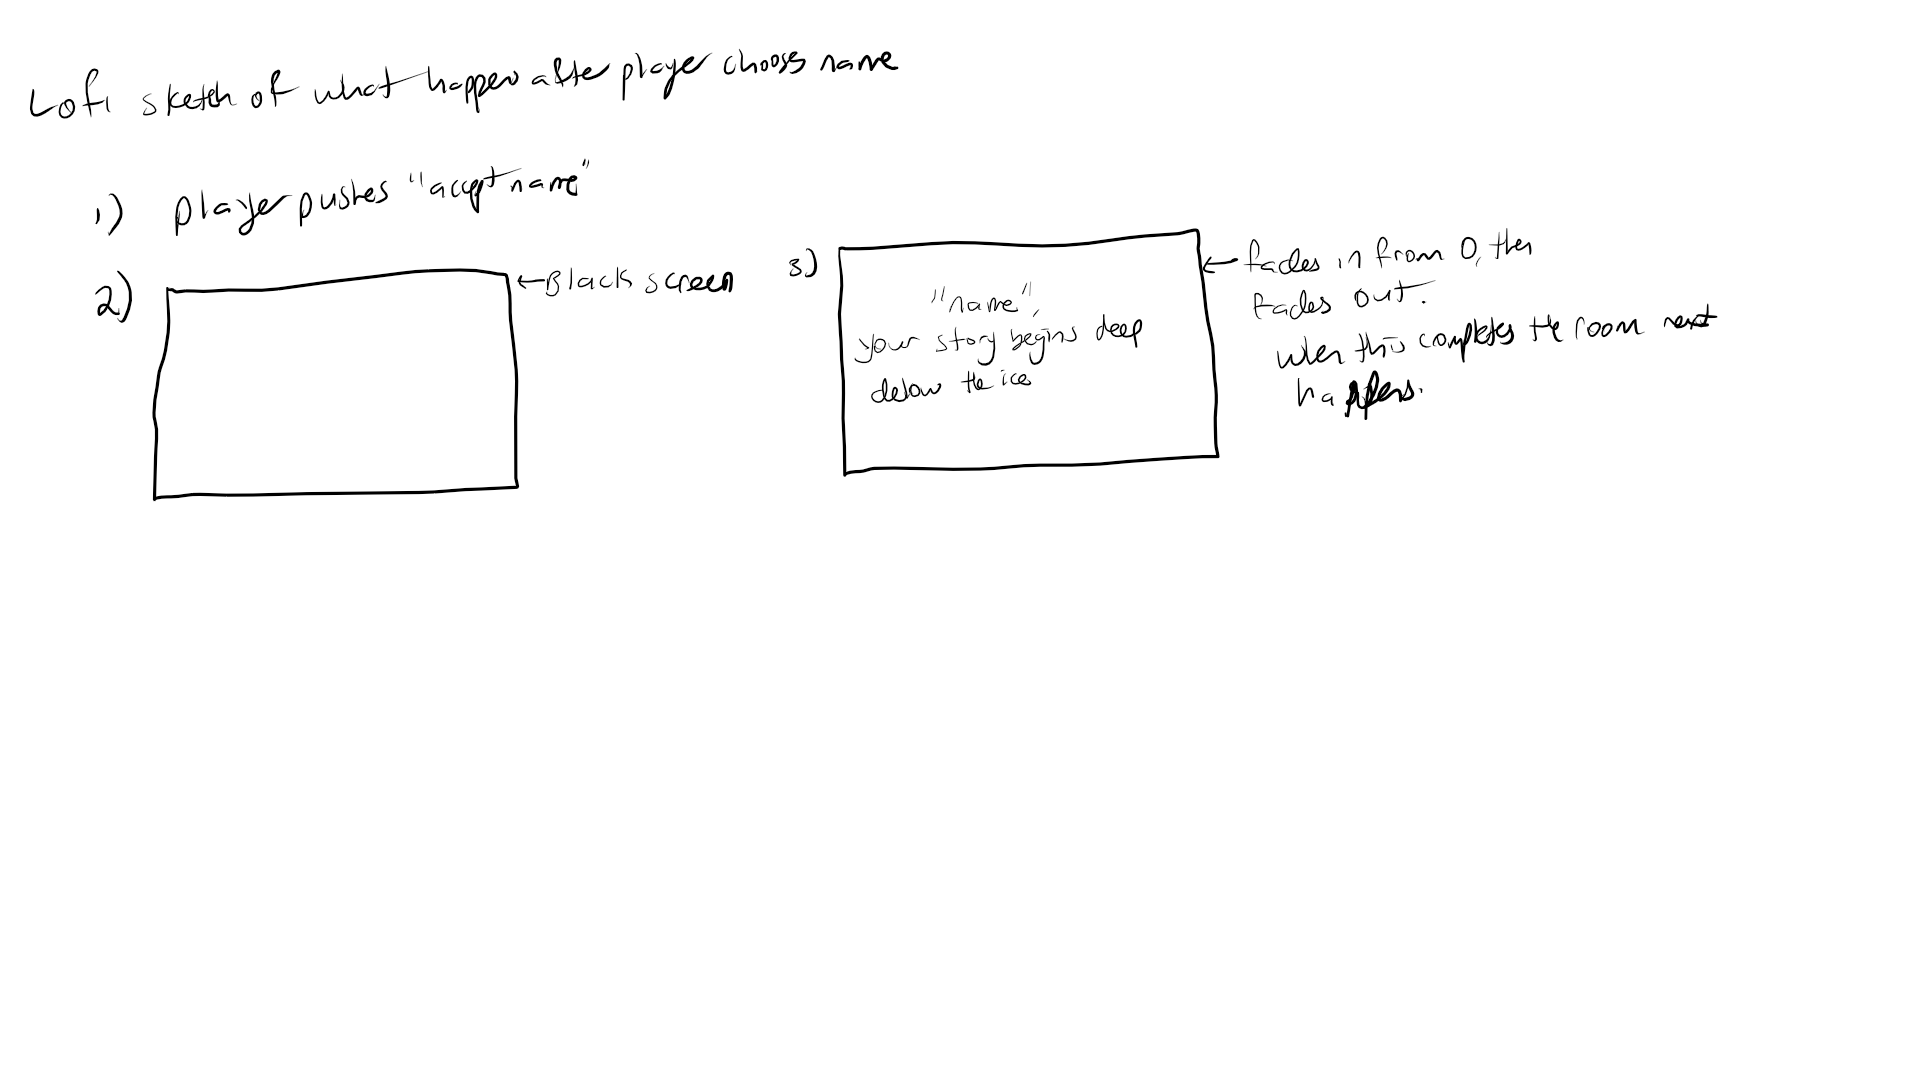 Lofi sketch of what happens after player chooses name
1) player pushes "accept name"
2)
←Black screen
3)
"name",
your story begins deep
below the ice
← fades in from 0, then
fades out.
when this completes the room next
happens.